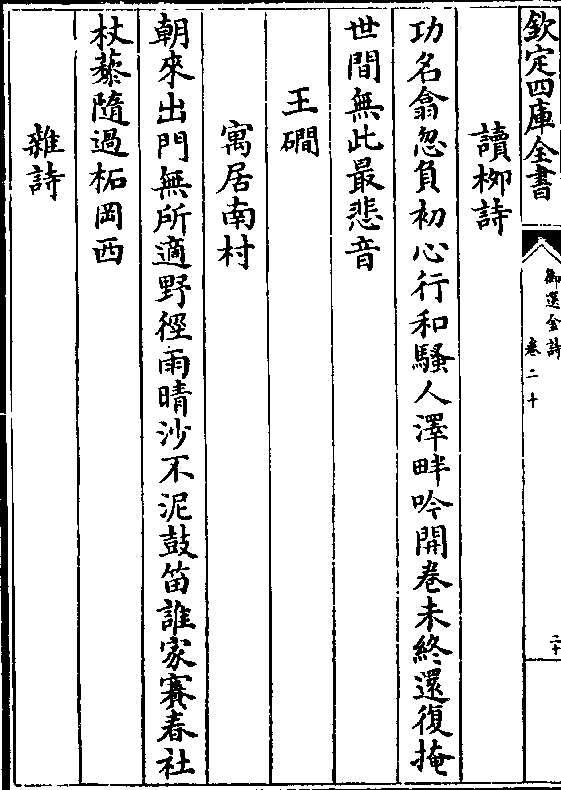 欽定四庫全書
御選金詩
卷二十
二十
讀柳詩
功名翕忽負初心行和騷人澤畔吟開卷未終還復掩
世間無此最悲音
王磵
寓居南村
朝來出門無所適野徑雨晴沙不泥鼓笛誰家賽春社
杖藜隨過柘岡西
雜詩